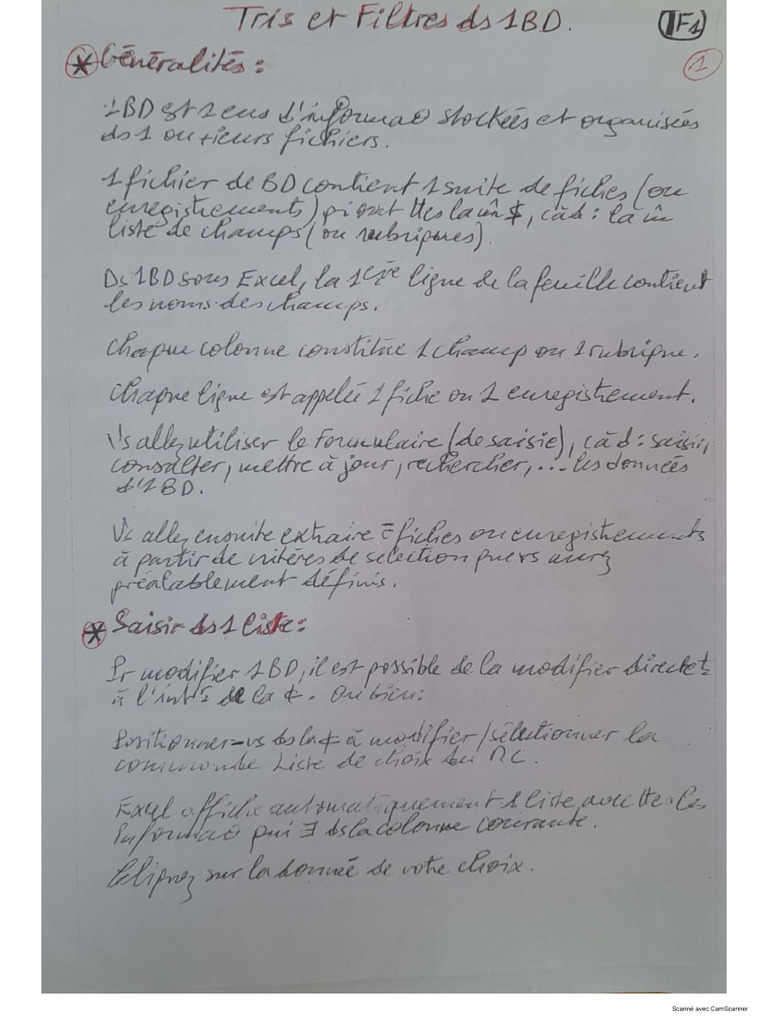 Tris et Filtres ds 1BD.
TF1
1
* Généralités :
1BD est 1 ens d'informa° stockées et organisées
ds 1 ou +ieurs fichiers.
1 fichier de BD contient 1 suite de fiches (ou
enregistrements) qi ont ttes la m̂, càd : la m̂
liste de champs (ou rubriques).
Ds 1BD sous Excel, la 1ère ligne de la feuille contient
les noms des champs.
Chaque colonne constitue 1 champ ou 1 rubrique.
Chaque ligne est appelée 1 fiche ou 1 enregistrement.
Vs allez utiliser le Formulaire (de saisie), càd : saisir,
consulter, mettre à jour, rechercher, ... les données
d'1BD.
Vs allez ensuite extraire fiches ou enregistrements
à partir de critères de sélection que vs aurez
préalablement définis.
* Saisir ds 1 liste :
Pr modifier 1BD, il est possible de la modifier directet
à l'intr de la ¢. Ou bien :
Positionner-vs ds la ¢ à modifier / sélectionner la
commande Liste de choix du MC.
Excel affiche automatiquement 1 liste avec ttes les
Informa° qui ∃ ds la colonne courante.
Cliquez sur la donnée de votre choix.
Scanné avec CamScanner